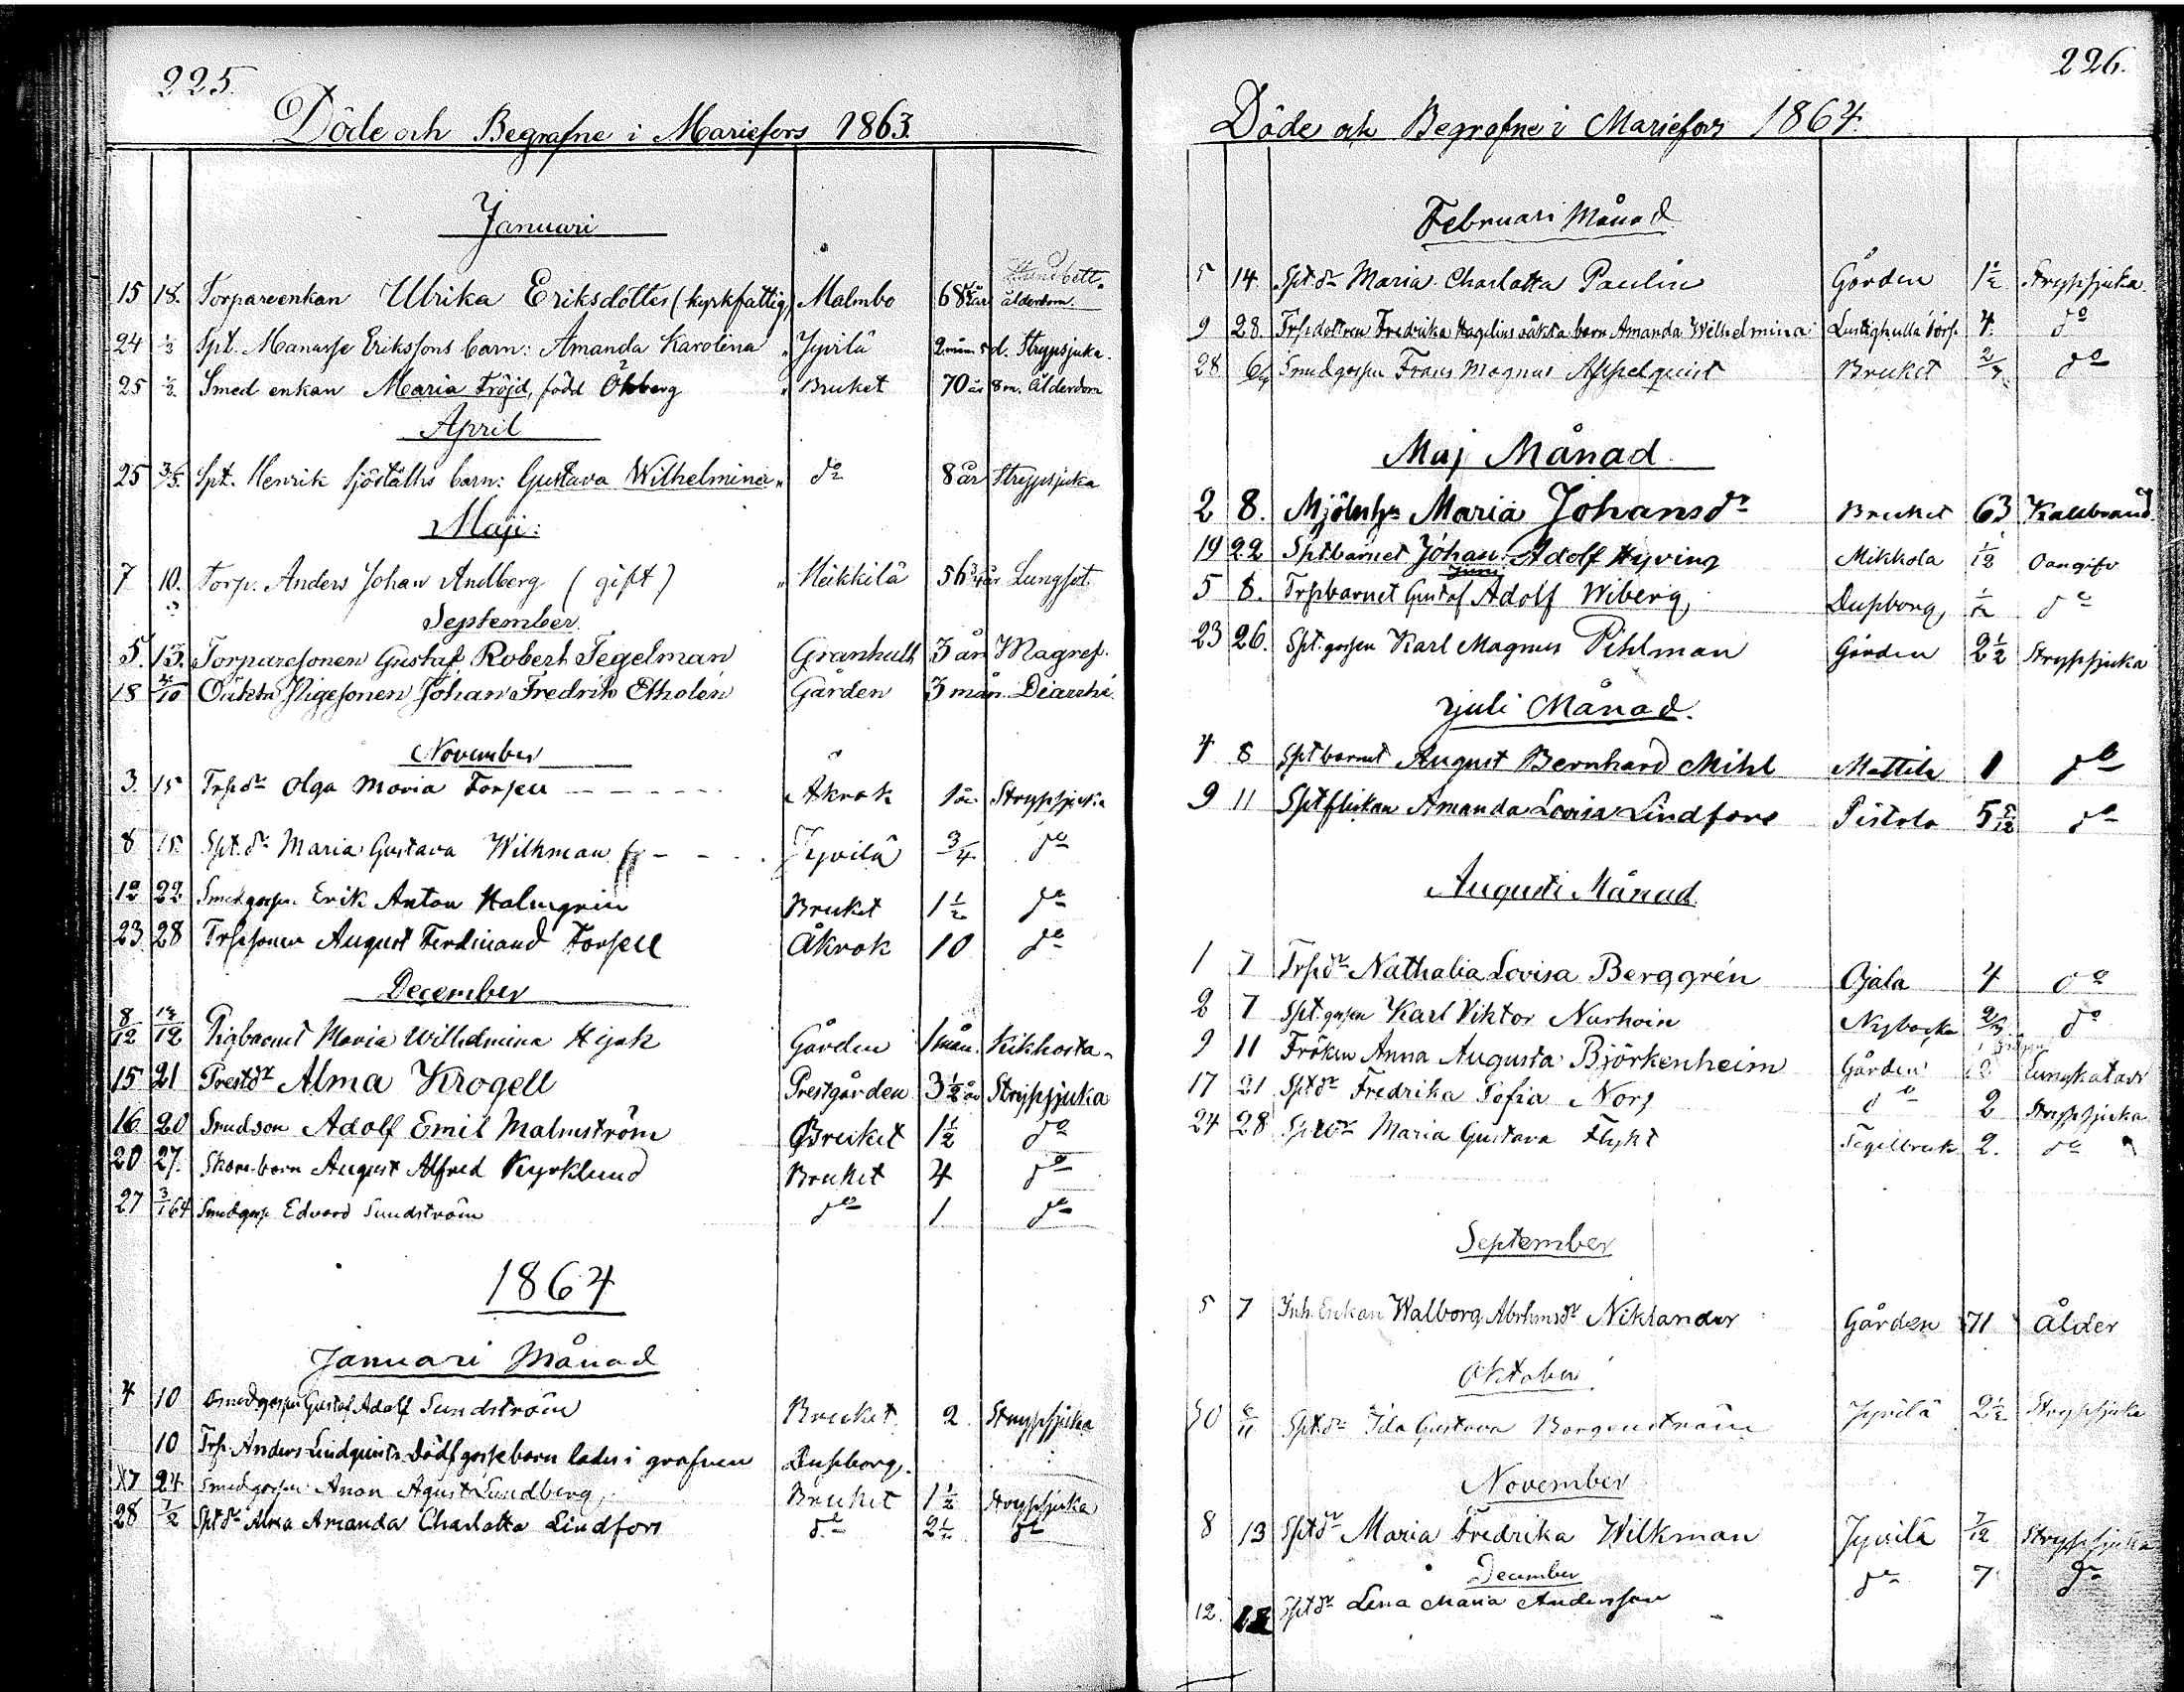 225.
Döde och Begrafne i Mariefors 1863.
Januari
15 18. Torpareenkan Ulrika Eriksdotter (kyrkfattig) Malmbo 68 år ålderdom.
24 1/3 Spt. Manasse Erikssons barn: Amanda Karolina " Jyvilä 2 mån 5 d. Strypsjuka.
25 1/2 Smed enkan Maria Fröjd, född Öhberg " Bruket 70 år 8 m. Ålderdom
April
25 3/5. Spt. Henrik Sjöställts barn: Gustava Wilhelmina " do 8 år Strypsjuka
Maji:
7 10. Torp. Anders Johan Andberg (gift) " Heikkilä 56 3/4 år Lungsot.
September
5. 13. Torparesonen Gustaf Robert Tegelman Granhult 3 år Magref.
18 4/10 Oäkta Pigesonen Johan Fredrik Etholén Gården 3 mån. Diarrhé.
November
3. 15 Trpdr Olga Maria Forsell Åkrok 1 år Strypsjuka
8 15 Spt. dr Maria Gustava Wilkman Jyvilä 3/4 do
12 22 Smedgossen Erik Anton Holmgrén Bruket 1 1/2 do
23 28 Trpsonen August Ferdinand Forsell Åkrok 10 do
December
8/12 13/12 Pigbarnet Maria Wilhelmina Hjek Gården 1 mån. Kikhosta
15 21 Prestdr Alma Krogell Prestgården 3 1/2 år Strypsjuka
16 20 Smedson Adolf Emil Malmström Bruket 1 1/2 do
20 27. Skom. barn August Alfred Kyrklund Bruket 4 do
27 3/1 64 Smedgoss. Edvard Sundström do 1 do
1864
Januari Månad
4 10 Smedgossen Gustaf Adolf Sundström Bruket 2 Strypsjuka
10 Trp. Anders Lindquists Dödf gossebarn lades i grafven Dusborg.
17 24 Smedgossen Anon Agust Sundberg, Bruket 1 1/2 Strypsjuka
28 7/2 Spt dr Alma Amanda Charlotta Lindfors do 2 1/2 do
226.
Döde och Begrafne i Mariefors 1864.
Februari Månad
5 14 Spt. dr Maria Charlotta Paulin Gården 1 1/2 Strypsjuka.
9 28. Trpdottren Fredrika Hagelins oäkta barn Amanda Wilhelmina Lustigkulla Torp 4. do
28 6/4 Smedgossen Frans Magnus Appelquist Bruket 2/3 do
Maj Månad.
2 8. Mjölnhn Maria Johansdr Bruket 63 Kallbrand
19 22 Sptbarnet Johan Adolf Hyving Mikkola 1/2 Oangifv
Juni
5 8. Trpbarnet Gustaf Adolf Wiberg, Dusborg, 1/12 do
23 26. Spt. gossen Karl Magnus Pihlman Gården 2 1/2 Strypsjuka
Juli Månad.
4 8 Spt barnet August Bernhard Mihl Mattila 1 do
9 11 Sptflickan Amanda Lovisa Lindfors Pistola 5 5/12 do
Augusti Månad.
1 7 Trpdr Nathalia Lovisa Berggrén Ojala 4 do
2 7 Spt. gossen Karl Viktor Nurhoin Nybacka 2/3 do
9 11 Fröken Anna Augusta Björkenheim Gården 12 Lungkatarr
17 21 Sptdr Fredrika Sofia Nors do 2 Strypsjuka
24 28 Sptdr Maria Gustava Flykt Tegelbruk 2. do
September
5 7 Inh. Enkan Walborg Abrhmsdr Niklander Gården 71 Ålder
Oktober
30 6/11 Spt. dr Ida Gustava Borgenström Jyvilä 2 1/2 Strypsjuka
November
8 13 Sptdr Maria Fredrika Wilkman Jyvilä 7/12 Strypsjuka
December
12. 18 Sptdr Lena Maria Andersson do 7 do